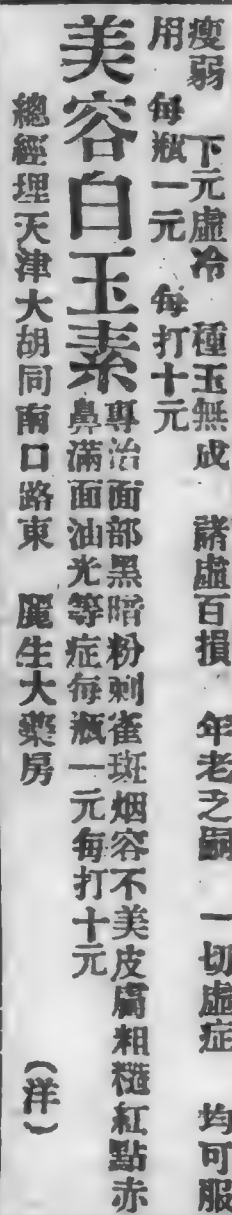 瘦弱　下元虛冷　種玉無成　諸虛百損　年老乏嗣　一切虛症　均可服
用　每瓶一元　每打十元
美容白玉素
專治面部黑暗粉刺雀斑烟容不美皮膚粗糙紅點赤
鼻滿面油光等症每瓶一元每打十元
總經理天津大胡同南口路東　麗生大藥房　（洋）